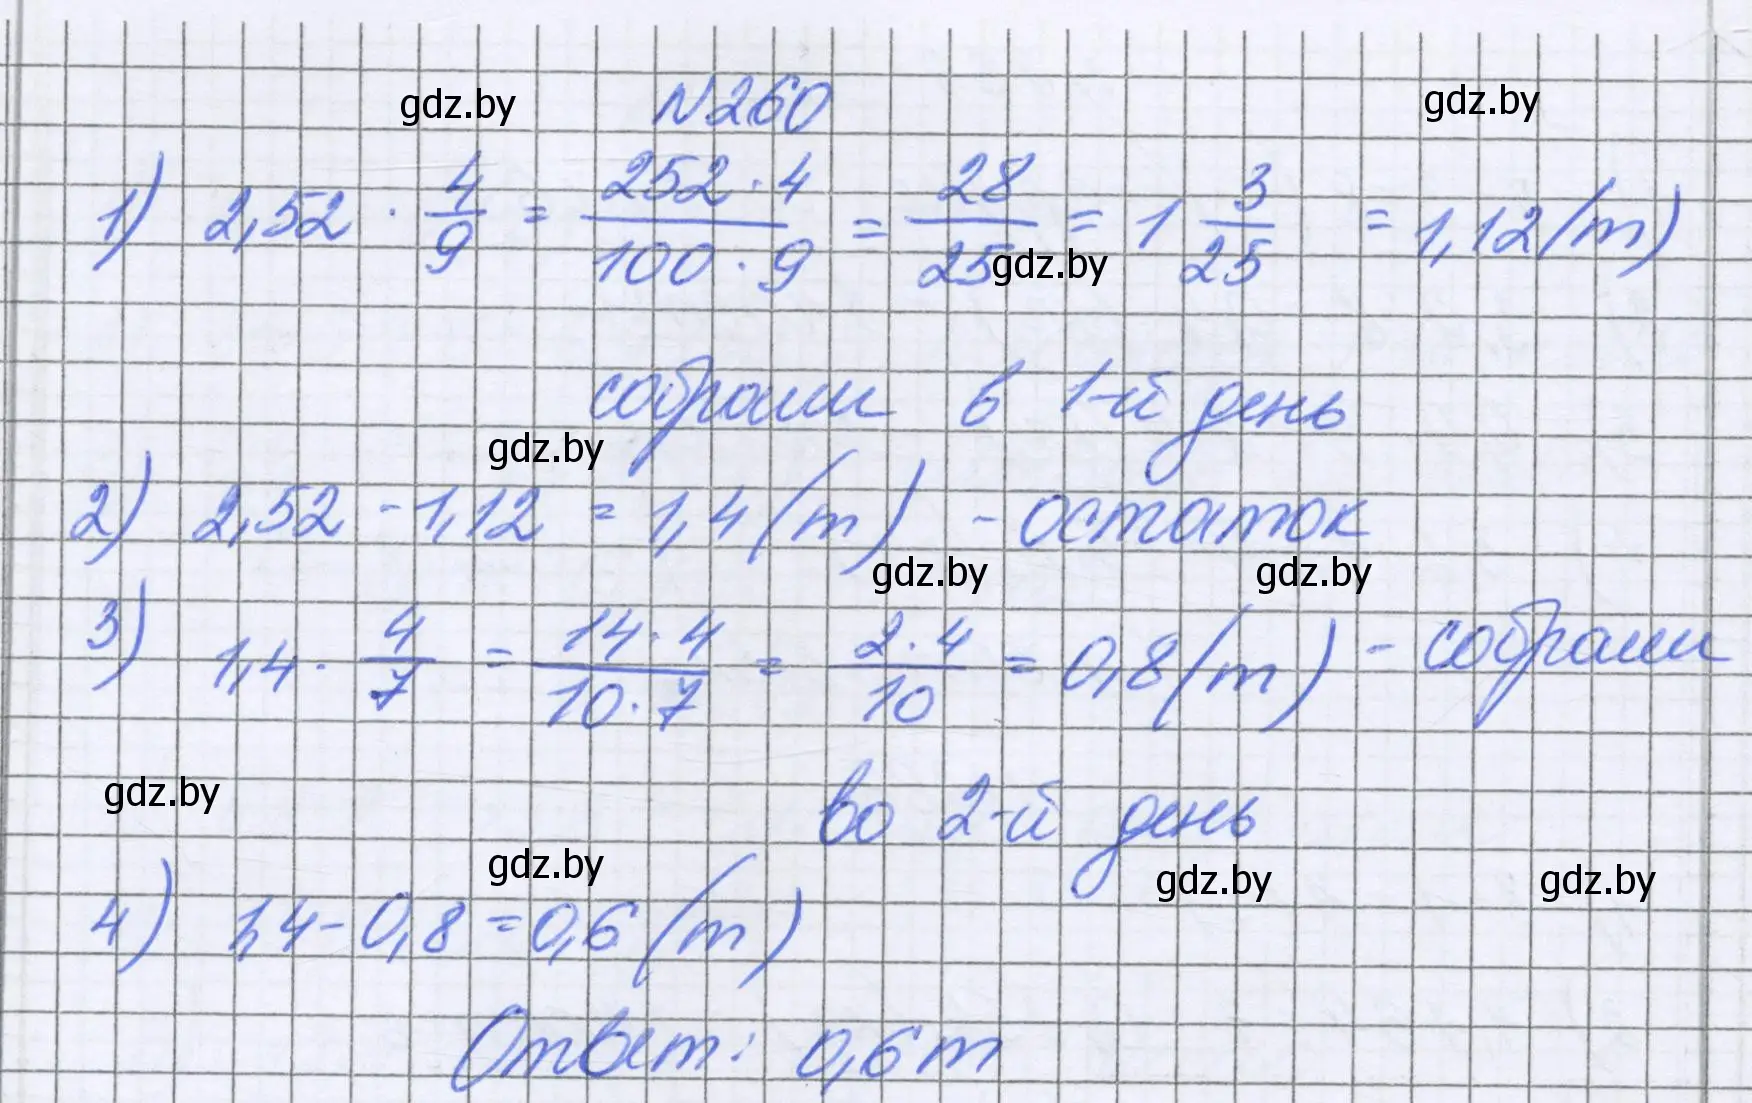 gdz.by №260 gdz.by
1) 2,52 · 4/9 = 252·4/100·9 = 28/25 = 1 3/25 = 1,12 (т)
gdz.by
собрали в 1-й день
gdz.by
2) 2,52 - 1,12 = 1,4 (т) - остаток
gdz.by gdz.by
3) 1,4 · 4/7 = 14·4/10·7 = 2·4/10 = 0,8 (т) - собрали
gdz.by
во 2-й день
gdz.by gdz.by gdz.by
4) 1,4 - 0,8 = 0,6 (т)
Ответ: 0,6 т